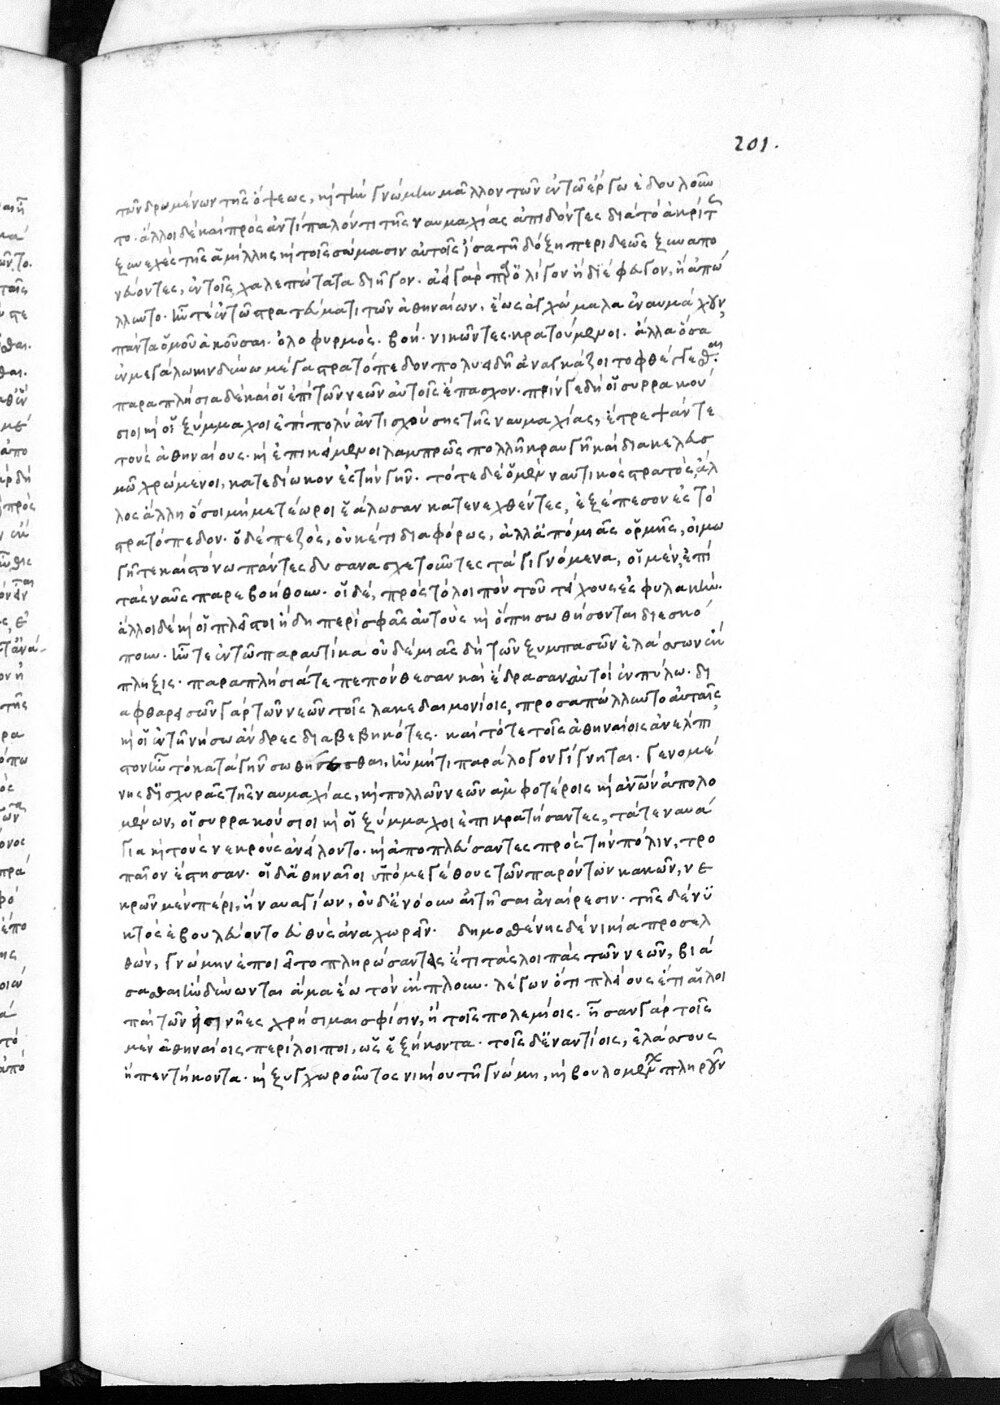 201.
τῶν δρωμένων τῆς ὄψεως, καὶ τὴν γνώμην μᾶλλον τῶν ἐν τῷ ἔργῳ ἐδουλοῦν
το· ἄλλοι δὲ καὶ πρὸς ἀντίπαλόν τι τῆς ναυμαχίας ἀπιδόντες διὰ τὸ ἀκρίτ
ξυνεχὲς τῆς ἁμίλλης καὶ τοῖς σώμασιν αὐτοῖς ἴσα τῇ δόξῃ περιδεῶς ξυναπο
νεύοντες, ἐν τοῖς χαλεπώτατα διῆγον· ἀεὶ γὰρ παρ' ὀλίγον ἢ διέφευγον, ἢ ἀπώ
λλυντο. ἦν τε ἐν τῷ στρατεύματι τῶν ἀθηναίων, ἕως ἀγχώμαλα ἐναυμάχουν,
πάντα ὁμοῦ ἀκοῦσαι. ὀλοφυρμός. βοή. νικῶντες. κρατούμενοι. ἄλλα ὅσα
ἐν μεγάλῳ κινδύνῳ μέγα στρατόπεδον πολυειδῆ ἀναγκάζοιτο φθέγγεσθαι.
παραπλήσια δὲ καὶ οἱ ἐπὶ τῶν νεῶν αὐτοῖς ἔπασχον. πρίν γε δὴ οἱ συρρακού
σιοι καὶ οἱ ξύμμαχοι ἐπὶ πολὺ ἀντισχούσης τῆς ναυμαχίας, ἔτρεψάν τε
τοὺς ἀθηναίους. καὶ ἐπικείμενοι λαμπρῶς πολλῇ κραυγῇ καὶ διακελευσ
μῷ χρώμενοι, κατεδίωκον ἐς τὴν γῆν. τότε δὲ ὁ μὲν ναυτικὸς στρατὸς, ἄλ
λος ἄλλῃ ὅσοι μὴ μετέωροι ἑάλωσαν κατενεχθέντες, ἐξέπεσον ἐς τὸ
στρατόπεδον. ὁ δὲ πεζὸς, οὐκέτι διαφόρως, ἀλλ' ἀπὸ μιᾶς ὁρμῆς, οἰμω
γῇ τε καὶ στόνῳ πάντες δυσανασχετοῦντες τὰ γιγνόμενα, οἱ μὲν, ἐπὶ
τὰς ναῦς παρεβοήθουν. οἱ δὲ, πρὸς τὸ λοιπὸν τοῦ τείχους ἐς φυλακήν.
ἄλλοι δὲ καὶ οἱ πλεῖστοι ἤδη περὶ σφᾶς αὐτοὺς καὶ ὅπῃ σωθήσονται διεσκό
πουν. ἦν τε ἐν τῷ παραυτίκα οὐδεμιᾶς δὴ τῶν ξυμπασῶν ἐλάσσων ἔκ
πληξις. παραπλήσιά τε πεπόνθεσαν καὶ ἔδρασαν αὐτοὶ ἐν πύλῳ. δι
αφθαρεισῶν γὰρ τῶν νεῶν τοῖς λακεδαιμονίοις, προσαπώλλυντο αὐταῖς
καὶ οἱ ἐν τῇ νήσῳ ἄνδρες διαβεβηκότες. καὶ τότε τοῖς ἀθηναίοις ἀνέλπι
στον ἦν τὸ κατὰ γῆν σωθήσεσθαι, ἢν μή τι παράλογον γίγνηται. γενομέ
νης δ' ἰσχυρᾶς τῆς ναυμαχίας, καὶ πολλῶν νεῶν ἀμφοτέροις καὶ ἀνθρώπων ἀπολο
μένων, οἱ συρρακούσιοι καὶ οἱ ξύμμαχοι ἐπικρατήσαντες, τά τε ναυά
για καὶ τοὺς νεκροὺς ἀνείλοντο. καὶ ἀποπλεύσαντες πρὸς τὴν πόλιν, τρο
παῖον ἔστησαν. οἱ δ' ἀθηναῖοι ὑπὸ μεγέθους τῶν παρόντων κακῶν, νε
κρῶν μὲν πέρι, ἢ ναυαγίων, οὐδ' ἐνόουν αἰτῆσαι ἀναίρεσιν. τῆς δὲ νυ
κτὸς ἐβουλεύοντο εὐθὺς ἀναχωρεῖν. δημοσθένης δὲ νικίᾳ προσελ
θὼν, γνώμην ἐποιεῖτο πληρώσαντας ἔτι τὰς λοιπὰς τῶν νεῶν, βιά
σασθαι ἢν δύνωνται ἅμα ἕῳ τὸν ἔκπλουν. λέγων ὅτι πλείους ἔτι αἱ λοι
παί τῶν εἰσι νῆες χρήσιμαι σφίσιν, ἢ τοῖς πολεμίοις. ἦσαν γὰρ τοῖς
μὲν ἀθηναίοις περίλοιποι, ὡς ἑξήκοντα. τοῖς δ' ἐναντίοις, ἐλάσσους
ἢ πεντήκοντα. καὶ ξυγχωροῦντος νικίου τῇ γνώμῃ, καὶ βουλομένων πληροῦν